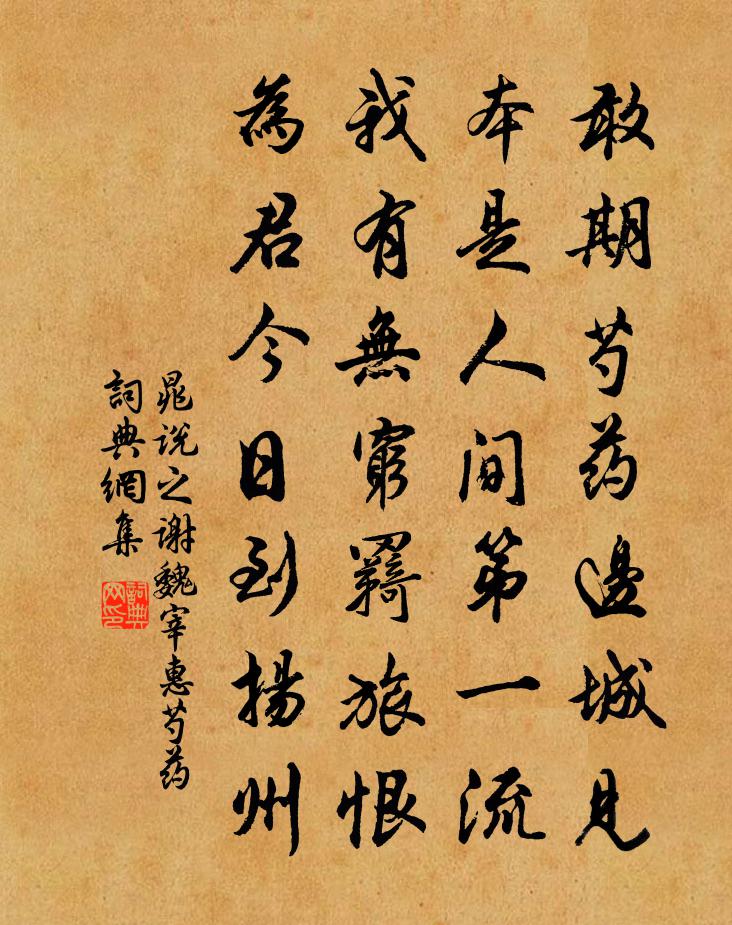 敢期芍药邊城見
本是人间第一流
我有無窮羁旅恨
為君今日到揚州
晁说之谢魏宰惠芍药
詞典網集
詞典网印